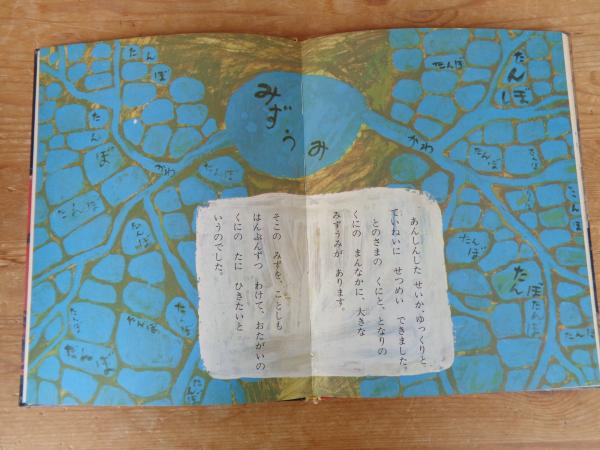 みずうみ
かわ
かわ
たんぼ
たんぼ
たんぼ
たんぼ
たんぼ
たんぼ
たんぼ
たんぼ
たんぼ
たんぼ
たんぼ
たんぼ
たんぼ
たんぼ
たんぼ
たんぼ
たんぼ
たんぼ
たんぼ
たんぼ
あんしんした せいか、ゆっくりと、
ていねいに せつめい できました。
とのさまの くにと、となりの
くにの まんなかに、大きな
みずうみが あります。
そこの みずを、ことしも
はんぶんずつ わけて、おたがいの
くにの たに ひきたいと
いうのでした。